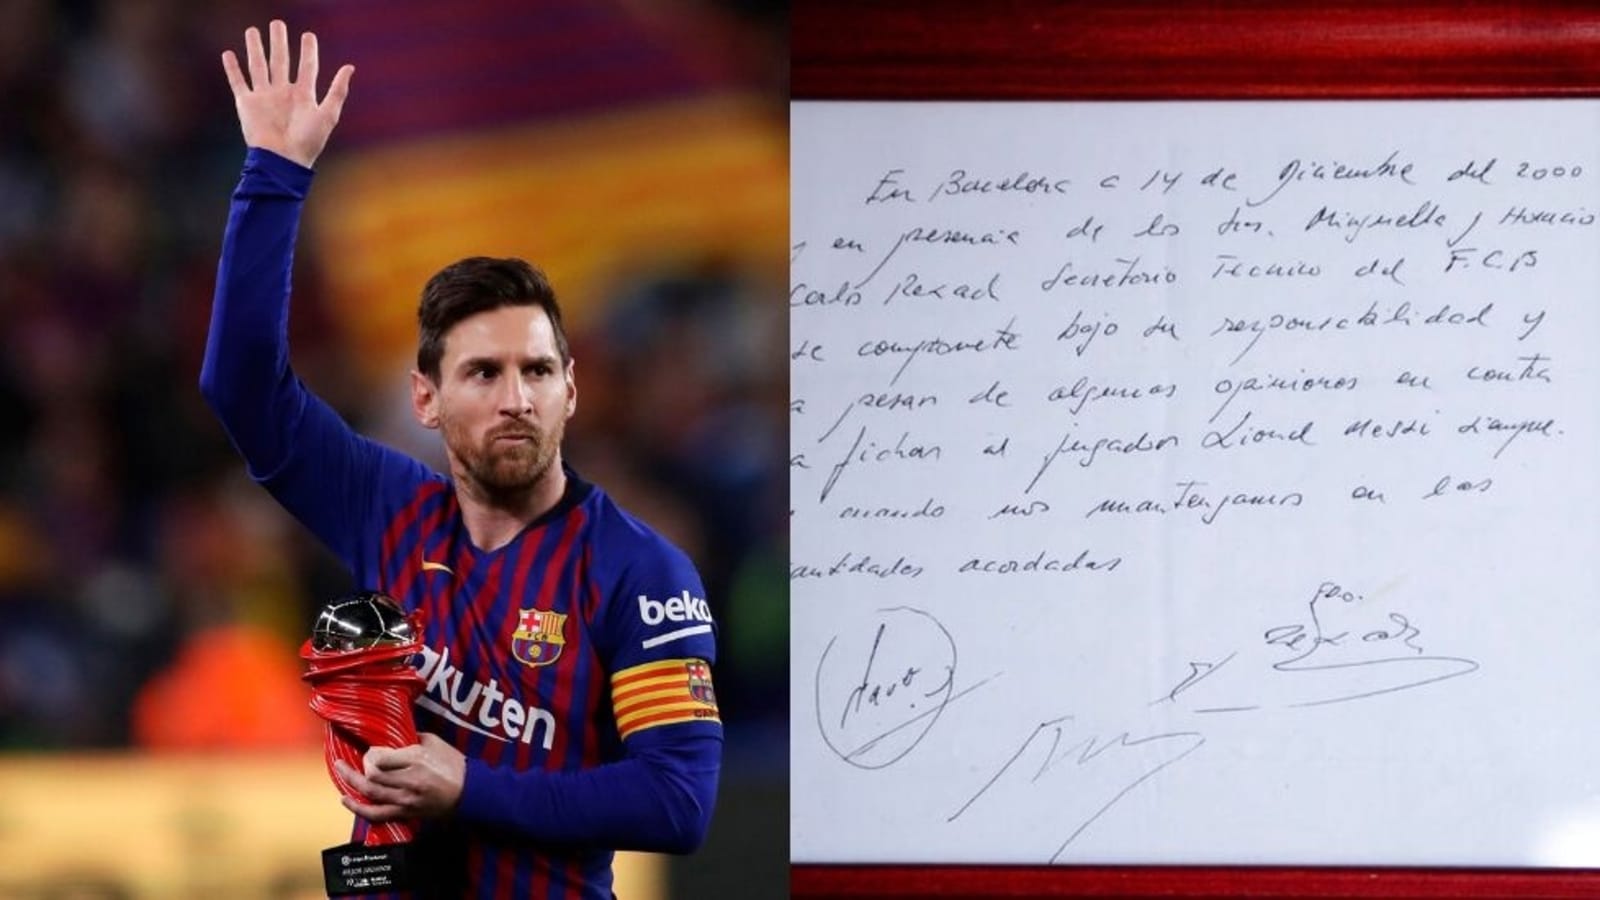 beko
Rakuten
FCB
En Barcelona a 14 de Diciembre del 2000
y en presencia de los Sres. Minguella y Horacio
Carlos Rexach Secretario Técnico del F.C.B
se compromete bajo su responsabilidad y
a pesar de algunas opiniones en contra
a fichar al jugador Lionel Messi siempre.
cuando nos mantengamos en las
cantidades acordadas